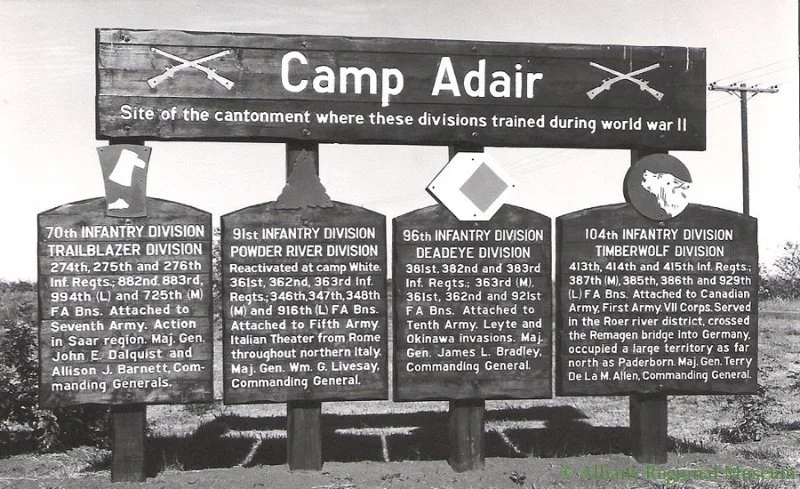 Camp Adair
Site of the cantonment where these divisions trained during world war II
70th INFANTRY DIVISION
TRAILBLAZER DIVISION
274th, 275th and 276th
Inf. Regts.; 882nd, 883rd,
994th (L) and 725th (M)
FA Bns. Attached to
Seventh Army. Action
in Saar region. Maj. Gen.
John E. Dalquist and
Allison J. Barnett, Com-
manding Generals.
91st INFANTRY DIVISION
POWDER RIVER DIVISION
Reactivated at camp White.
361st, 362nd, 363rd Inf.
Regts.; 346th, 347th, 348th
(M) and 916th (L) FA Bns.
Attached to Fifth Army.
Italian Theater from Rome
throughout northern Italy.
Maj. Gen. Wm. G. Livesay,
Commanding General.
96th INFANTRY DIVISION
DEADEYE DIVISION
381st, 382nd and 383rd
Inf. Regts.; 363rd (M),
361st, 362nd and 921st
FA Bns. Attached to
Tenth Army. Leyte and
Okinawa invasions. Maj.
Gen. James L. Bradley,
Commanding General.
104th INFANTRY DIVISION
TIMBERWOLF DIVISION
413th, 414th and 415th Inf. Regts.;
387th (M), 385th, 386th and 929th
(L) FA Bns. Attached to Canadian
Army, First Army, VII Corps. Served
in the Roer river district, crossed
the Remagen bridge Into Germany,
occupied a large territory as far
north as Paderborn. Maj. Gen. Terry
De La M. Allen, Commanding General.
© Albany Regional Museum